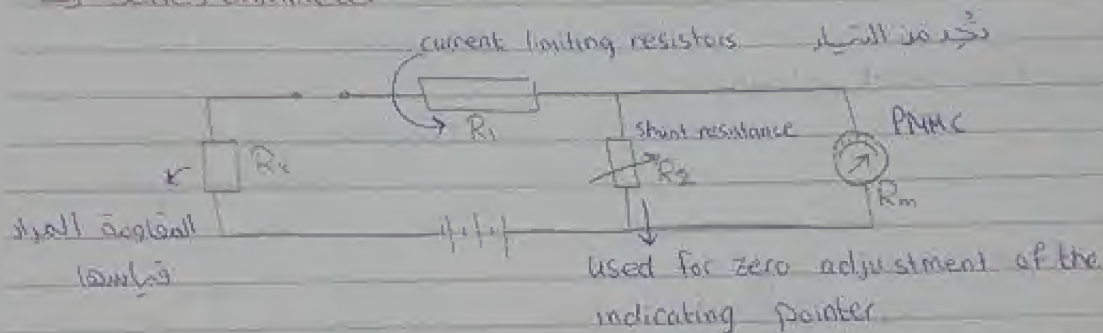 current limiting resistors تحد من التيار
R1
shunt resistance
PMMC
Rx
R2
Rm
المقاومة المراد
قياسها
used for zero adjustment of the
indicating pointer.